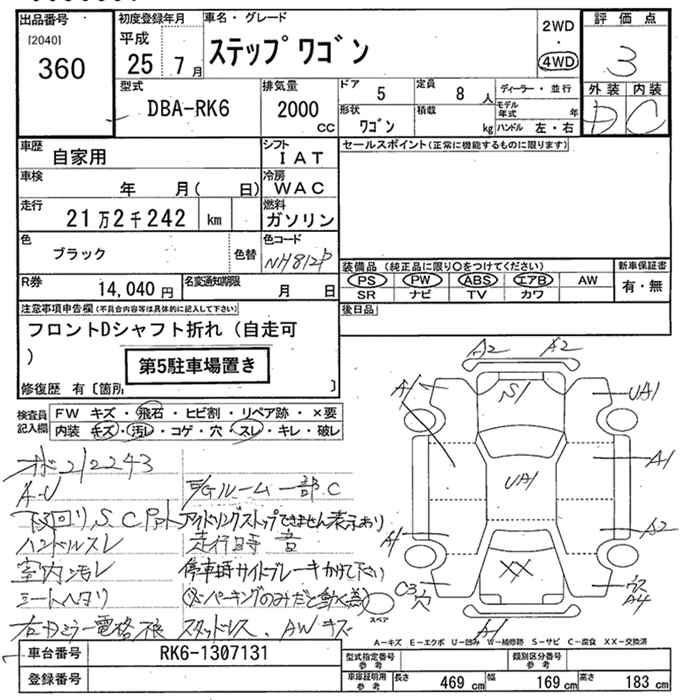 出品番号
[2040]
360
初度登録年月
平成
25 7月
車名・グレード
ステップワゴン
2WD
・
4WD
評価点
3
外装 内装
D C
型式
DBA-RK6
排気量
2000 CC
ドア 5
定員 8 人
形状 ワゴン
積載 kg
ディーラー・並行
モデル年式 年
ハンドル 左・右
車歴
自家用
シフト
IAT
車検
年 月( 日)
冷房
WAC
走行
21万2千242 km
燃料
ガソリン
色
ブラック
色替
色コード
NH812P
R券
14,040 円
名変通知期限
月 日
セールスポイント(正常に機能するものに限ります)
装備品(純正品に限り○をつけてください)
PS PW ABS エアB AW
SR ナビ TV カワ
新車保証書
有・無
後日品
注意事項申告欄(不具合内容等は具体的に記入して下さい)
フロントDシャフト折れ(自走可
)
第5駐車場置き
修復歴 有〔箇所 〕
検査員
記入欄
FW キズ・飛石・ヒビ割・リペア跡・×要
内装 キズ・汚レ・コゲ・穴・スレ・キレ・破レ
オド212243
A-U
下回リ,S.C
ハンドルスレ
室内ヨゴレ
シートヘタリ
右カミラー電格不良
E/Gルーム一部C
アイドリングストップできません表示あり
走行時 音
停車時サイドブレーキかけて下さい
(※パーキングのみだと動く為)
スタッドレス、AWキズ
A2 A2
A1 S1 UA1
UA1 A1
A1 A2
XX
C3 穴
A4
A1
スペア
A-キズ E-エクボ U-凹み W-補修跡 S-サビ C-腐食 XX-交換済
車台番号
RK6-1307131
登録番号
型式指定番号
参考
類別区分番号
参考
車庫証明用
参考
長さ 469 cm
幅 169 cm
高さ 183 cm